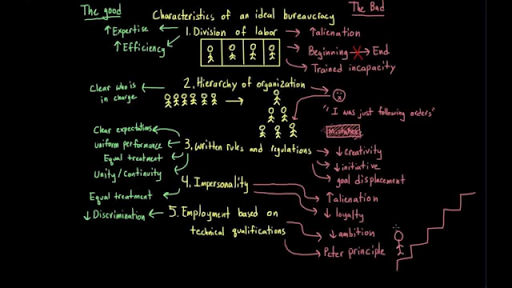 The good
Characteristics of an ideal bureaucracy
The Bad
↑Expertise
↑Efficiency
1. Division of labor
↑alienation
Beginning → End
Trained incapacity
Clear who is
in charge
2. Hierarchy of organization
"I was just following orders"
Mistakes
Clear expectations
uniform performance
Equal treatment
Unity/Continuity
3. Written rules and regulations
↓creativity
↓initiative
goal displacement
Equal treatment
↓ Discrimination
4. Impersonality
↑alienation
↓ loyalty
5. Employment based on
technical qualifications
↓ambition
Peter principle